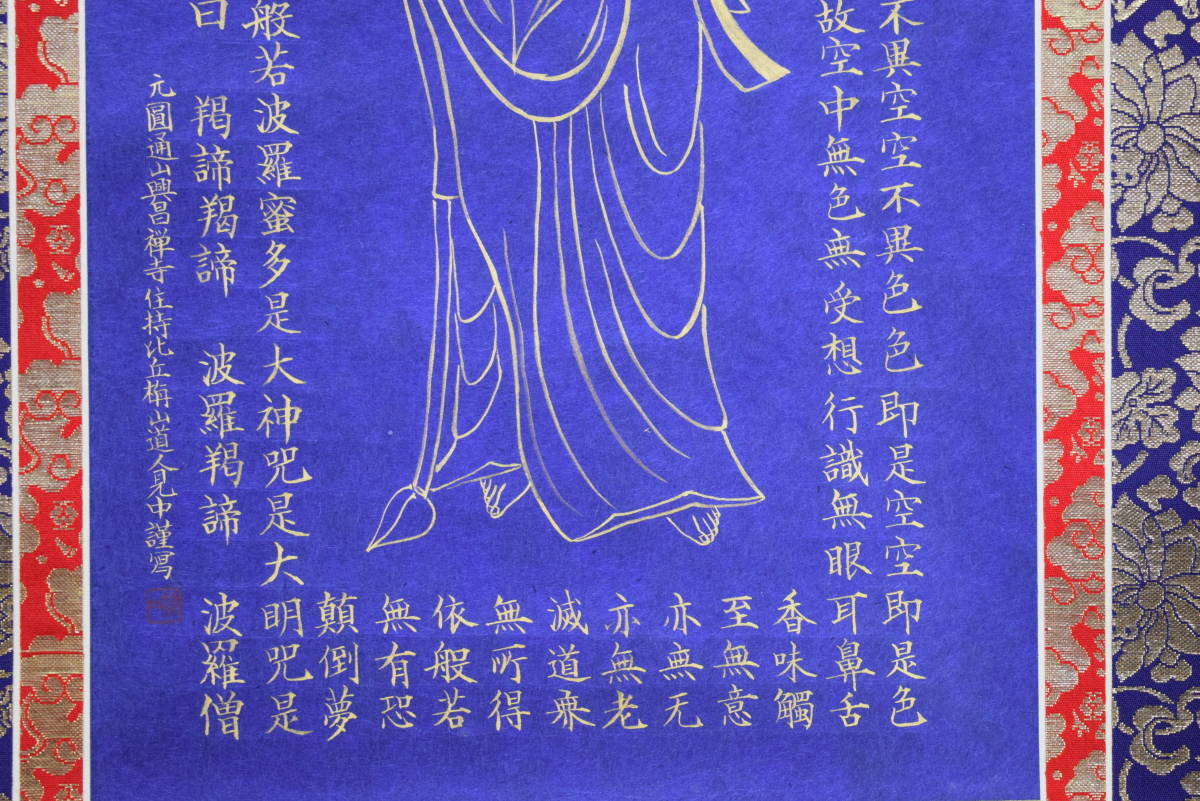 不異空空不異色色即是空空即是色
故空中無色無受想行識無眼耳鼻舌
香味觸
至無意
亦無无
亦無老
滅道無
無所得
依般若
無有恐
顛倒夢
般若波羅蜜多是大神咒是大明咒是
曰 羯諦羯諦 波羅羯諦 波羅僧
元圓通山興昌禅寺住持比丘梅山道人見中謹寫